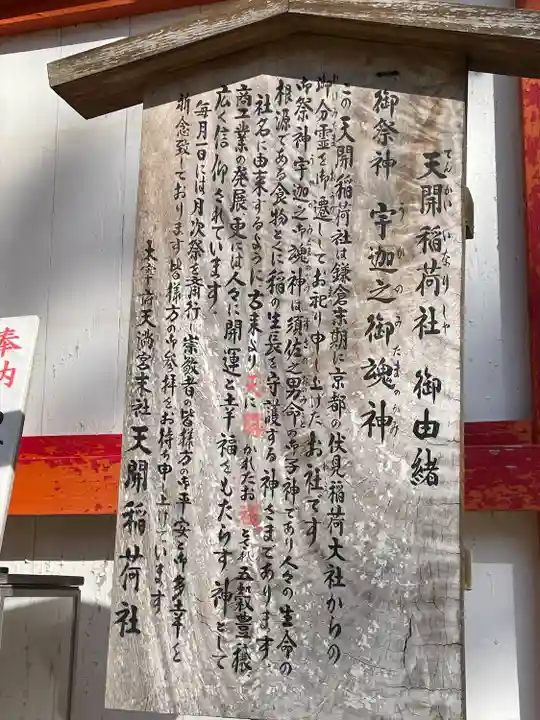 天開稲荷社 御由緒
てんかいいなりしゃ
一御祭神 宇迦之御魂神
うかのみたまのかみ
この天開稲荷社は鎌倉末期に京都の伏見稲荷大社からの
御分霊を御遷してお祀り申し上げたお社です。
御祭神宇迦之御魂神は須佐之男命の御子神であり人々の生命の
根源である食物とくに稲の生長を守護する神さまであります。
社名に由来するように古来より天に開かれたお社とされ五穀豊穣、
商工業の発展、更には人々に開運と幸福をもたらす神として
広く信仰されています。
毎月一日には月次祭を斎行し崇敬者の皆様方の御平安と御多幸を
祈念致しております 皆様方の御参拝をお待ち申し上げています
太宰府天満宮末社 天開稲荷社
奉納